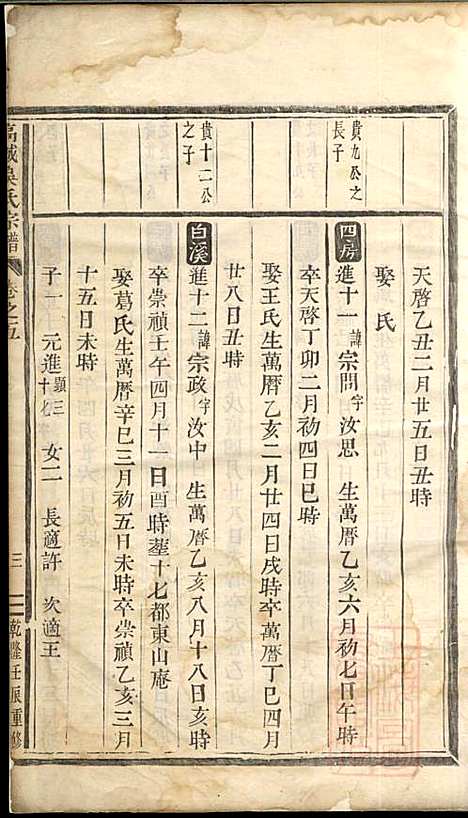 天啓乙丑二月廿五日丑時
娶 氏
貴九公之
長子
四房
進十一 諱宗問 字汝思 生萬曆乙亥六月初七日午時
卒天啓丁卯二月初四日巳時
娶王氏生萬曆乙亥二月廿四日戌時卒萬曆丁巳四月
廿八日丑時
貴十二公
之子
白溪
進十二 諱宗政 字汝中 生萬曆乙亥八月十八日亥時
卒崇禎壬午四月十一日酉時塟十七都東山庵
娶葛氏生萬曆辛巳三月初五日未時卒崇禎乙亥三月
十五日未時
子一 元進 女二 長適許 次適王
吳氏宗譜 卷之五 三 乾隆壬辰重修